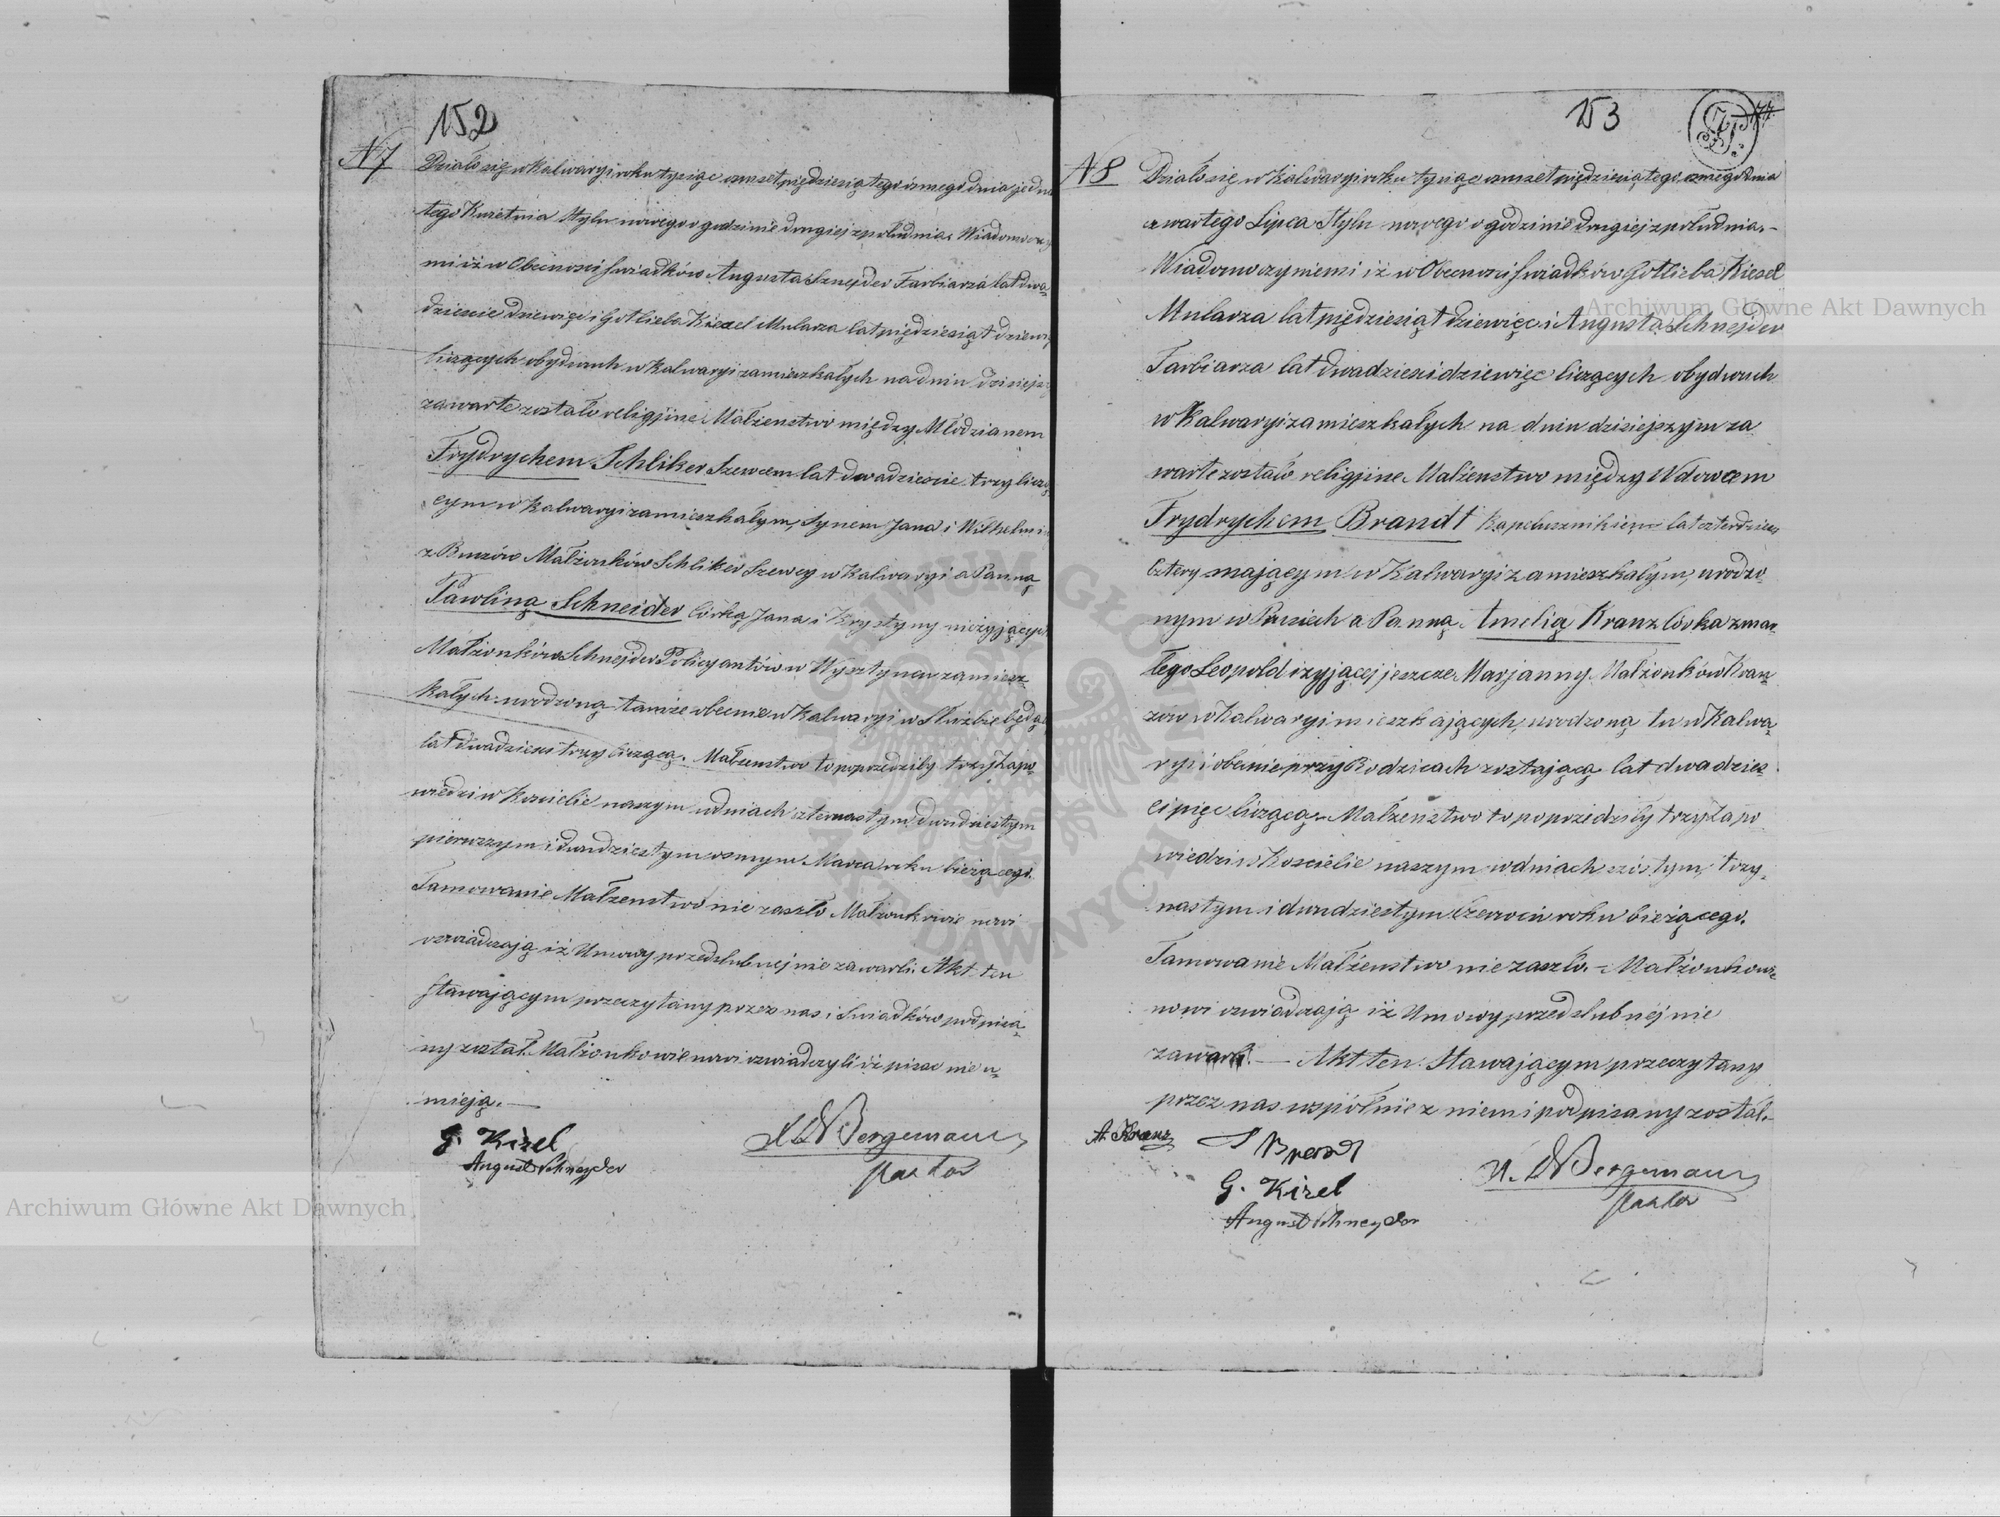 152
N 7
Działo się w Kalwaryi roku tysiąc osmset piędziesiątego osmego dnia jedna
tego Kwietnia Stylu nowego o godzinie drugiej z południa. Wiadomo czy
mi iż w Obecnosci Swiadków Augusta Sznejder Farbiarza lat dwa„
dziescie dziewięc i Gotlieba Kiezel Mularza lat pięddziesiąt dziewię
liczących obydwuch w Kalwaryi zamieszkałych na dniu dzisiejsz
zawarte zostało religijne Małżenstwo między Młodzianem
Frydrychem Schliker Szewcem lat dwadziescie trzy liczą
cym w Kalwaryi zamieszkałym, Synem Jana i Wilhelmi
z Małżonków Schliker Szewcy w Kalwaryi a Panną
Pawliną Schneider Córką Jana i Krystyny nieżyjących
Małżonków Schnejder Policyantów w Wysztyncu zamiesz„
kałych urodzoną tamże obecnie w Kalwaryi w Służbie będą
lat dwadziescia trzy liczącą. Małżenstwo to poprzedziły trzy Zapo„
wiedzi w Koscielie naszym w dniach czternastym, dwudziestym
pierwszym i dwudziestym osmym Marca roku bieżącego.
Tamowanie Małżenstwo nie zaszło Małżonkowie nowi
oswiadczają iż Umowy przedslubnej nie zawarli. Akt ten
Stawającym przeczytany przez nas i Swiadków podpisa„
ny został. Małżonkowie nowi oswiadczyli iż pisac nie u„
mieją. —
G. Kizel
August Schneyder
Bergemann
Pastor
Archiwum Główne Akt Dawnych
153
N 8
Działo się w Kalwaryi roku tysiąc osmset pięddziesiątego osmego dnia
czwartego Lipca Stylu nowego o godzinie drugiej z południa. –
Wiadomo czyniemi iż w Obecnosci Swiadków Gotlieba Kiesel
Mularza lat pięddziesiąt dziewięc i Augusta Schnejder
Farbiarza lat dwadziesci dziewięc liczących obydwuch
w Kalwaryi zamieszkałych na dniu dzisiejszym za
warte zostało religijne Małżenstwo między Wdowcem
Frydrychem Brandt Kapelusznikiem lat czterdziesci
cztery mającym w Kalwaryi zamieszkałym, urodzo„
nym w Prusiech a Panną Amelią Kranz Córka zmar„
łego Leopold i żyjącej jeszcze Marjanny Małżonków Kran„
zów w Kalwaryi mieszkających, urodzoną tu w Kalwa„
ryi i obecnie przy Rodzicach zostającą lat dwadzies„
ci pięc liczącą. – Małżenstwo to poprzedziły trzy Zapo„
wiedzi w Koscielie naszym w dniach szóstym, trzy„
nastym i dwudziestym Czerwca roku bieżącego.
Tamowanie Małżenstwo nie zaszło. – Małżonkowie
nowi oswiadczają iż Umowy przedslubnéj nie
zawarli. — Akt ten Stawającym przeczytany
przez nas wspólnie z niemi podpisany został. –
A. Kranz
Brandt
G. Kizel
August Schneyder
Bergemann
Pastor
Archiwum Główne Akt Dawnych
ARCHIWUM GŁÓWNE AKT DAWNYCH